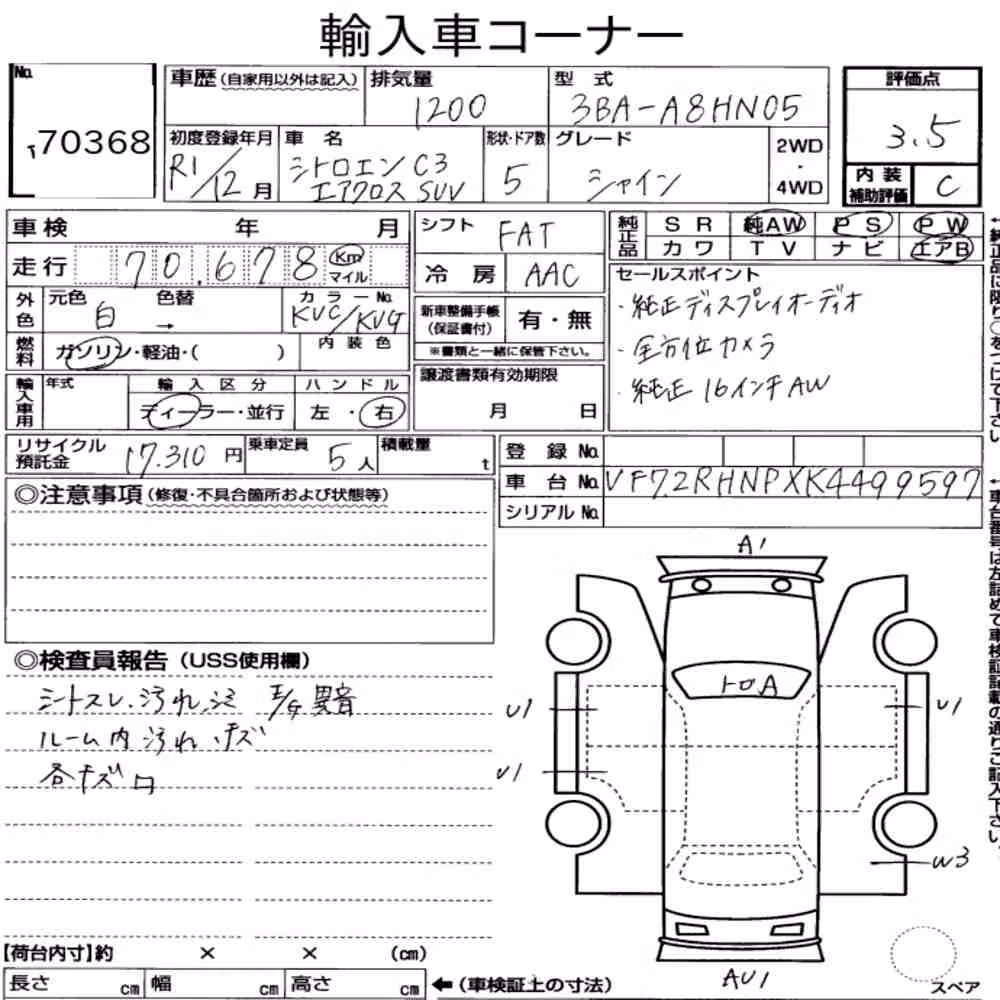 輸入車コーナー
No. 70368
車歴(自家用以外は記入) 排気量 1200 型式 3BA-A8HN05
初度登録年月 R1/12月 車名 シトロエン C3 エアクロス SUV 形状・ドア数 5 グレード シャイン 2WD・4WD
評価点 3.5
内装補助評価 C
車検 年 月
走行 70,678 Km マイル
シフト FAT
冷房 AAC
純正品 SR 純AW PS PW
カワ TV ナビ エアB
外色 元色 白 色替 → カラーNo. KVC/KVG
燃料 ガソリン・軽油・( ) 内装色
新車整備手帳(保証書付) 有・無
※書類と一緒に保管下さい。
セールスポイント
・純正ディスプレイオーディオ
・全方位カメラ
・純正16インチAW
輸入車用 年式 輸入区分 ディーラー・並行 ハンドル 左・右
譲渡書類有効期限
月 日
リサイクル預託金 17.310円 乗車定員 5人 積載量 t
登録No.
車台No. VF72RHNPXK4499597
シリアルNo.
◎注意事項(修復・不具合箇所および状態等)
◎検査員報告(USS使用欄)
シートスレ、汚れ、シミ E/G異音
ルーム内汚れ・キズ
各キズ
A1
トロA
U1
U1
U1
W3
AU1
スペア
【荷台内寸】約 × × (cm)
長さ cm 幅 cm 高さ cm ←(車検証上の寸法)
↑純正品に限り○をつけて下さい。
↑車台番号は左詰めで車検証記載の通りご記入下さい。